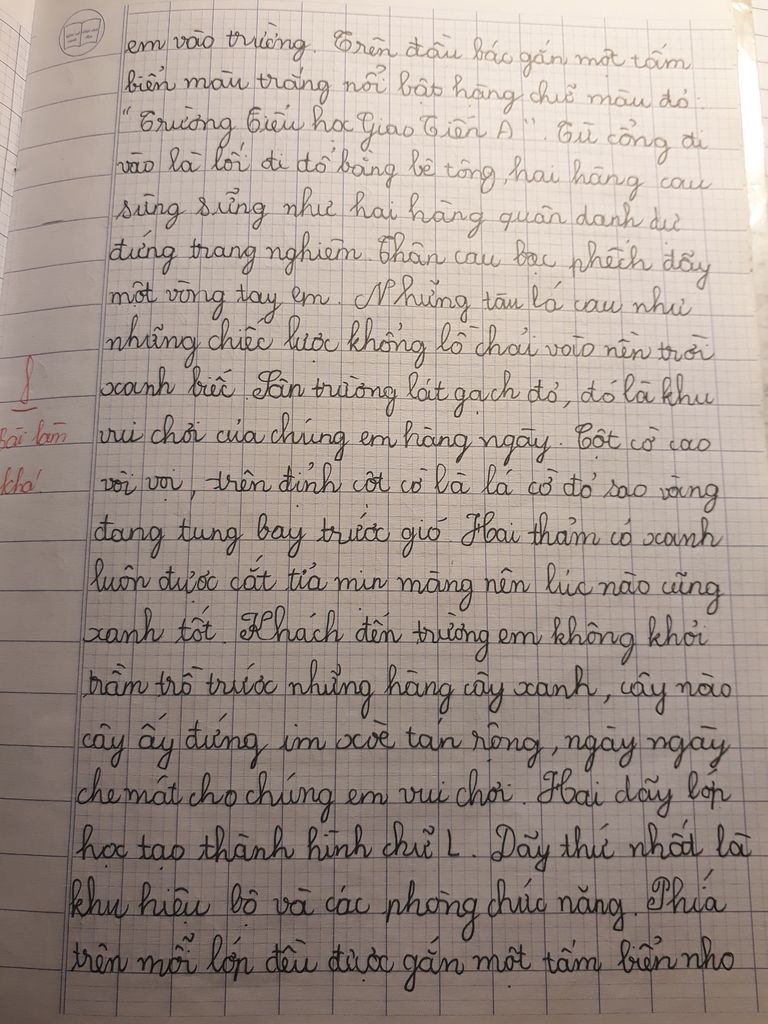 em vào trường. Trên đầu bác gắn một tấm
biển màu trắng nổi bật hàng chữ màu đỏ:
"Trường Tiểu học Giao Tiến A". Từ cổng đi
vào là lối đi đổ bằng bê tông, hai hàng cau
sừng sững như hai hàng quân danh dự
đứng trang nghiêm. Thân cau bạc phếch đầy
một vòng tay em. Những tàu lá cau như
những chiếc lược khổng lồ chải vào nền trời
xanh biếc. Sân trường lát gạch đỏ, đó là khu
vui chơi của chúng em hàng ngày. Cột cờ cao
vời vợi, trên đỉnh cột cờ là lá cờ đỏ sao vàng
đang tung bay trước gió. Hai thảm cỏ xanh
luôn được cắt tỉa mịn màng nên lúc nào cũng
xanh tốt. Khách đến trường em không khỏi
trầm trồ trước những hàng cây xanh, cây nào
cây ấy đứng im xoè tán rộng, ngày ngày
che mát cho chúng em vui chơi. Hai dãy lớp
học tạo thành hình chữ L. Dãy thứ nhất là
khu hiệu bộ và các phòng chức năng. Phía
trên mỗi lớp đều được gắn một tấm biển nho
8
Bài làm
khá